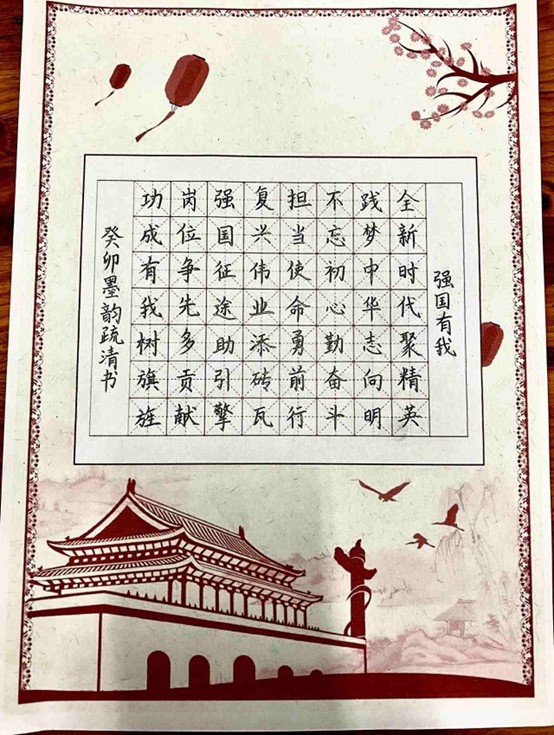 强国有我
全新时代聚精英
践梦中华志向明
不忘初心勤奋斗
担当使命勇前行
复兴伟业添砖瓦
强国征途助引擎
岗位争先多贡献
功成有我树旗旌
癸卯墨韵疏清书